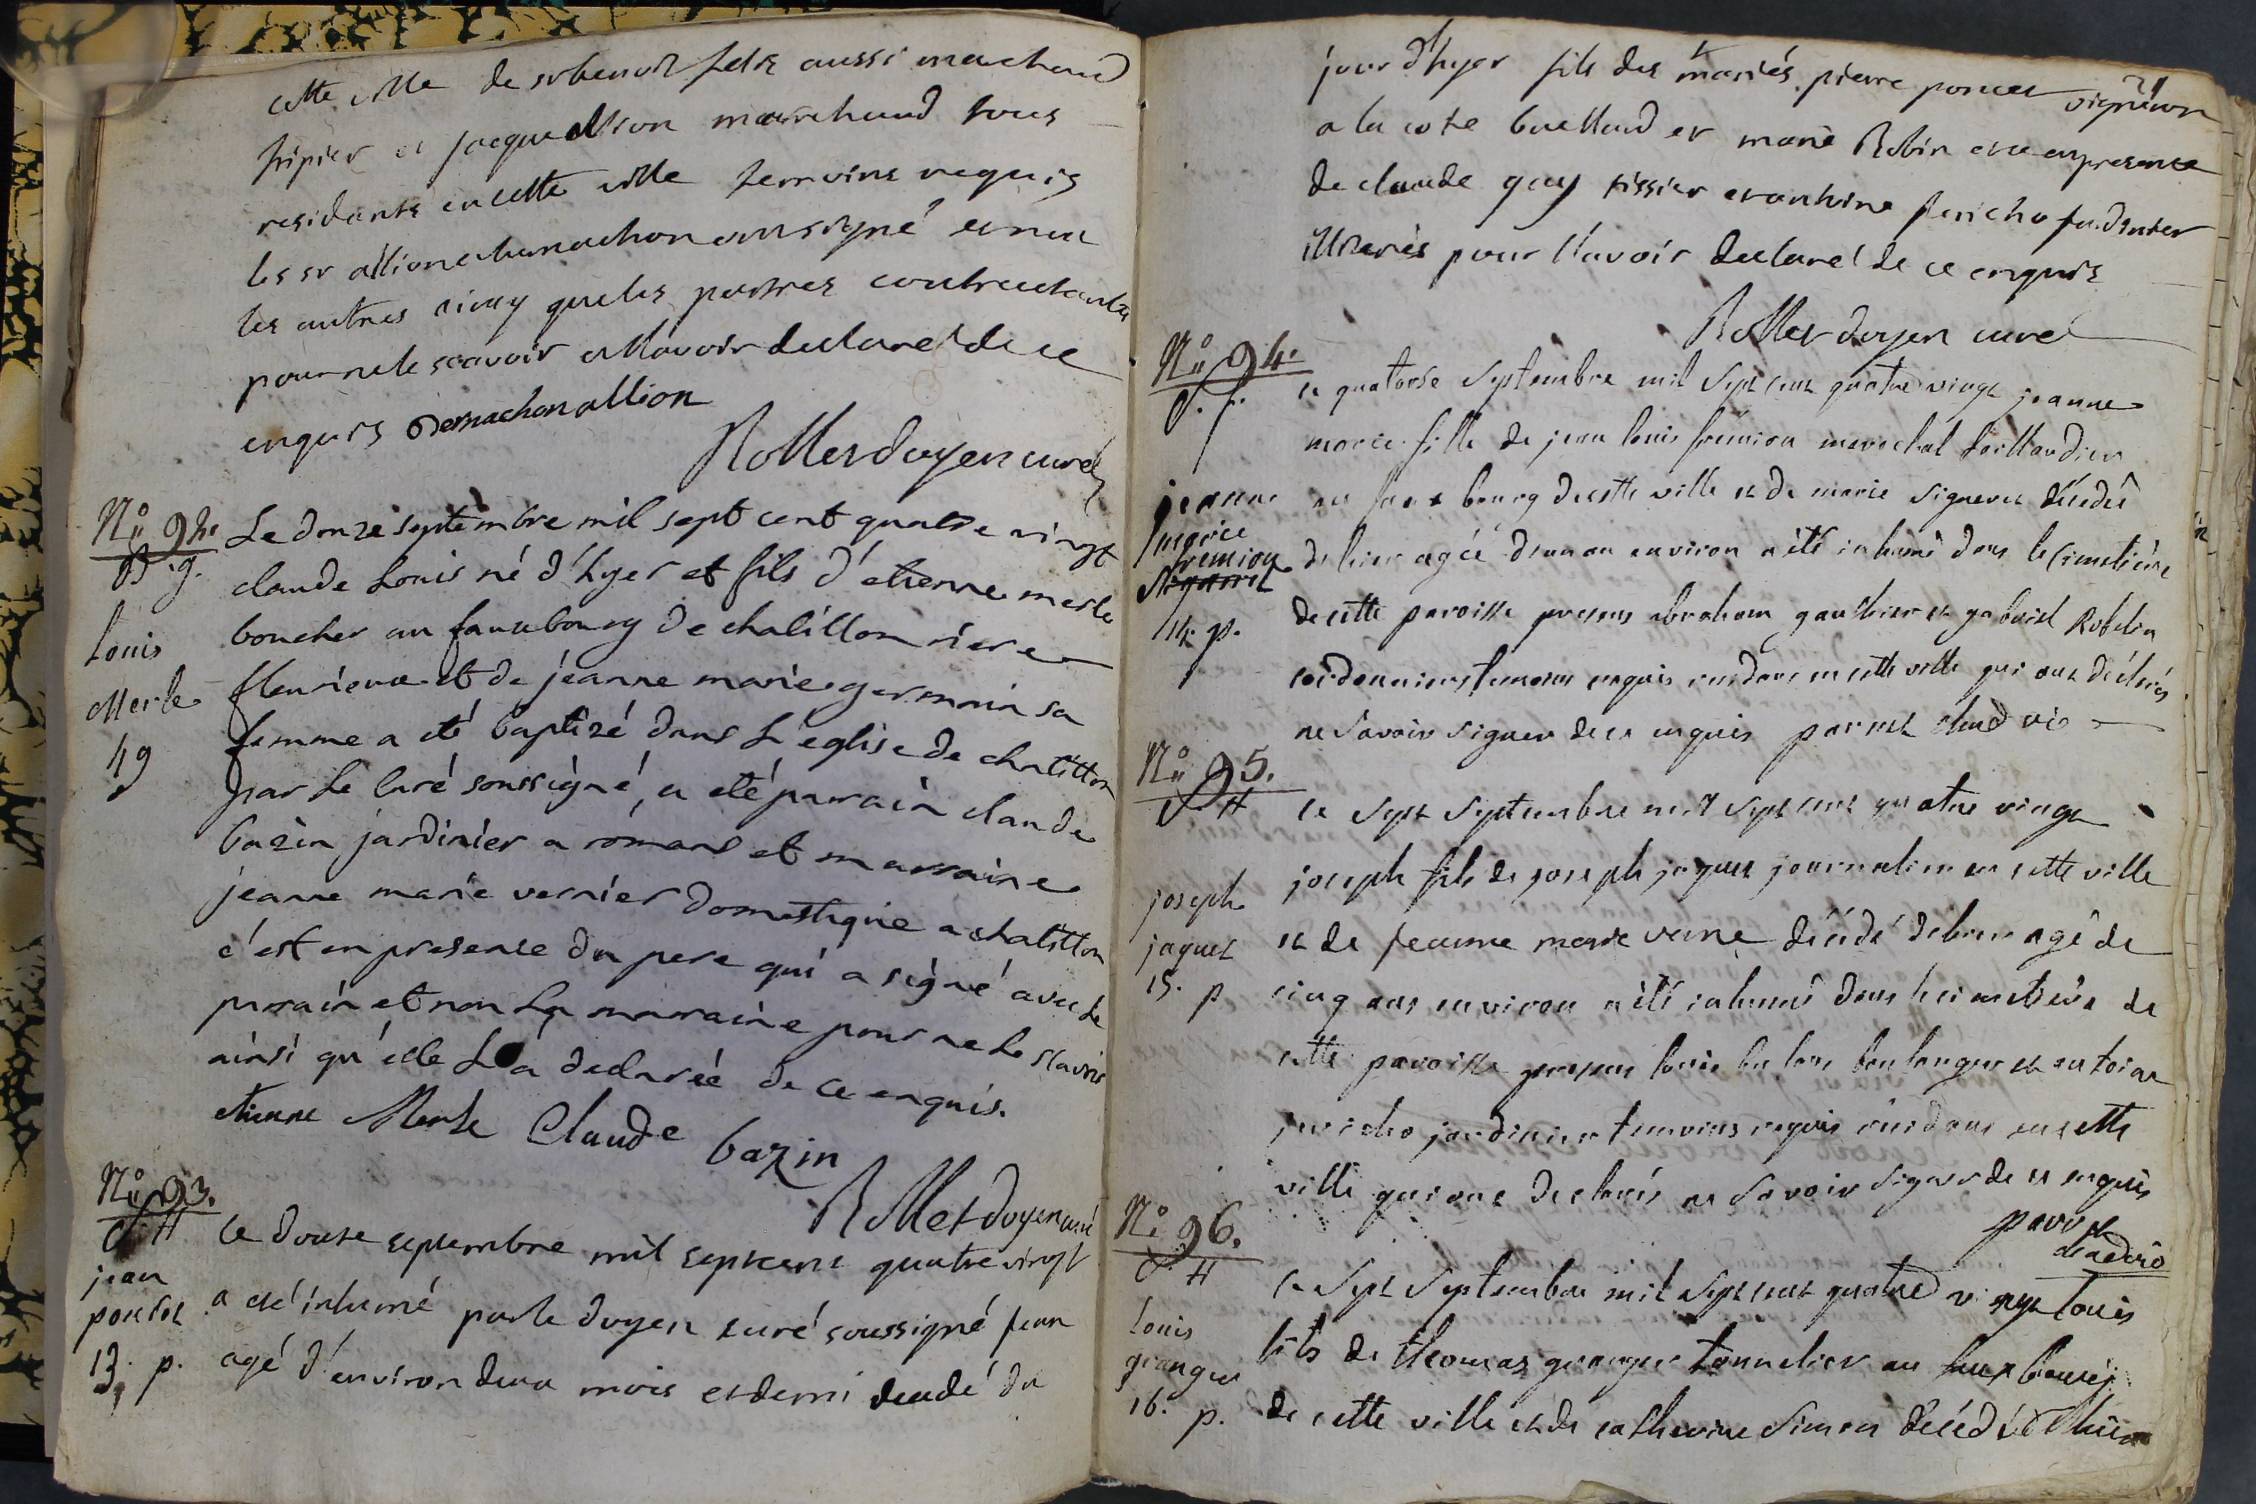 cette ville de sr benoit felix aussi marchand
fripier et jacque allion marchand tous
residants en cette ville temoins requis
les sr allion et demachon ont signé et non
les autres ainsy que les parties contractantes
pour ne le scavoir et l'avoir declaré de ce
enquis demachon allion
Rollet doyen curé
No 92.
B. g.
Louis
Merle
49
Le douze septembre mil sept cent quatre vingt
claude Louis né d'hyer et fils d'etienne merle
boucher au fauxbourg de chatillon riere
fleurieux et de jeanne marie germain sa
femme a eté baptizé dans L'eglise de chatillon
par Le Curé soussigné, a eté parain claude
bazin jardinier a romans et marraine
jeanne marie vernier domestique a chatillon
c'est en presence du pere qui a signé avec le
parain et non La marraine pour ne Le scavoir
ainsi qu'elle L'a declaréé de ce enquis.
etienne Merle Claude bazin
Rollet doyen curé
No 93.
S. H
jean
poncet
13. p.
Le douze septembre mil sept cent quatre vingt
a eté inhumé par le doyen curé soussigné jean
agé d'environ deux mois et demi decedé du
21
jour d'hyer fils des mariés pierre poncet vigneron
a la cote et marie Robin et ce en presence
de claude guy tissier et antoine jericho jardinier
illiterés pour l'avoir declaré de ce enquis
Rollet doyen curé
No 94.
S. f.
jeanne
marie
fremion
14. p.
Le quatorse Septembre mil Sept cent quatre vingt jeanne
marie fille de jean louis fremion marechal taillandier
au faux bourg de cette ville et de marie decedée
d'hier agéé d'un an environ a été inhumé dans le Cimetiére
de cette paroisse presens abraham gauthier et gabriel Robelin
cordonniers temoins requis residans en cette ville qui ont déclarés
ne Savoir signer de ce enquis par net vic
No 95.
S. H
joseph
jaquet
15. p
Le sept Septembre mil sept cent quatre vingt
joseph fils de joseph jaquet journalier en cette ville
et de jeanne marie verne décédé d'hier agé de
cinq ans environ a été inhumé dans le cimetiére de
cette paroisse presens louis boulanger et antoine
jericho jardinier temoins requis residans en cette
ville qui ont declarés ne Savoir Signer de ce enquis
No 96.
S. H
louis
granger
16. p.
Le Sept Septembre mil sept cent quatre vingt Louis
fils de thomas granger tonnelier au faux bourg
de cette ville et de catherine Simon décédé d'hier